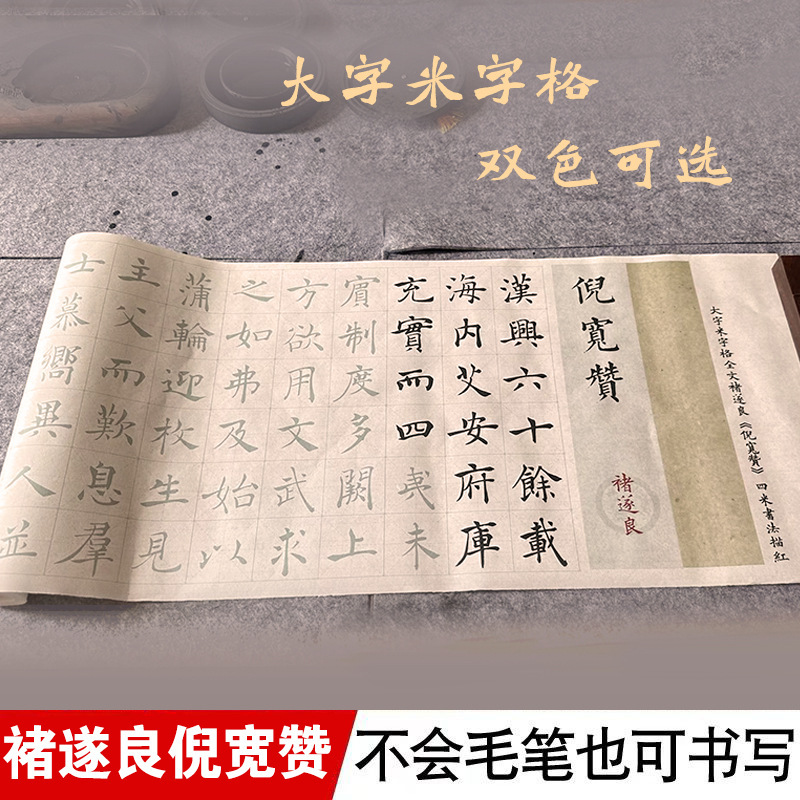 大字米字格
双色可选
大字米字格全文褚遂良《倪寬贊》四米書法描紅
倪寬贊
褚遂良
漢興六十餘載
海内艾安府庫
充實而四夷未
賓制度多闕上
方欲用文武求
之如弗及始以
蒲輪迎枚生見
主父而歎息羣
士慕嚮異人並
褚遂良倪宽赞
不会毛笔也可书写